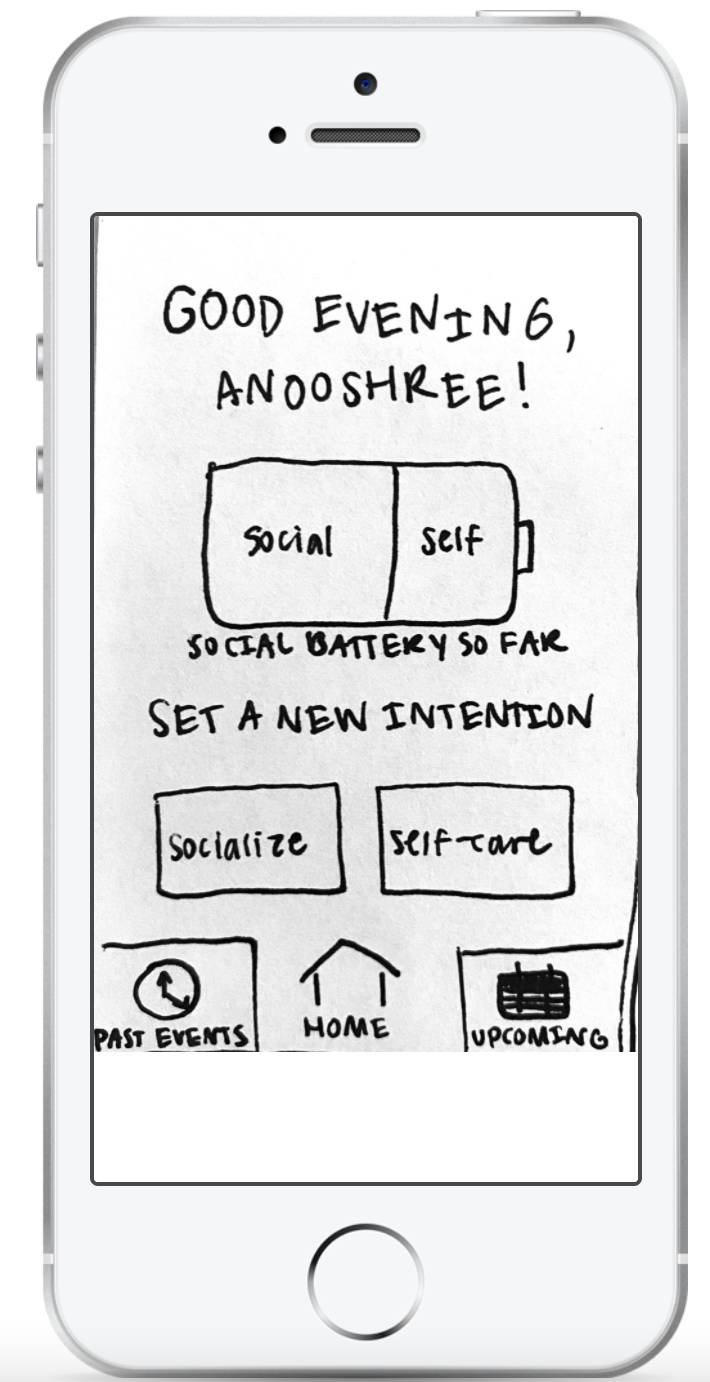 GOOD EVENING,
ANOOSHREE!
social self
SOCIAL BATTERY SO FAR
SET A NEW INTENTION
socialize self-care
PAST EVENTS HOME UPCOMING